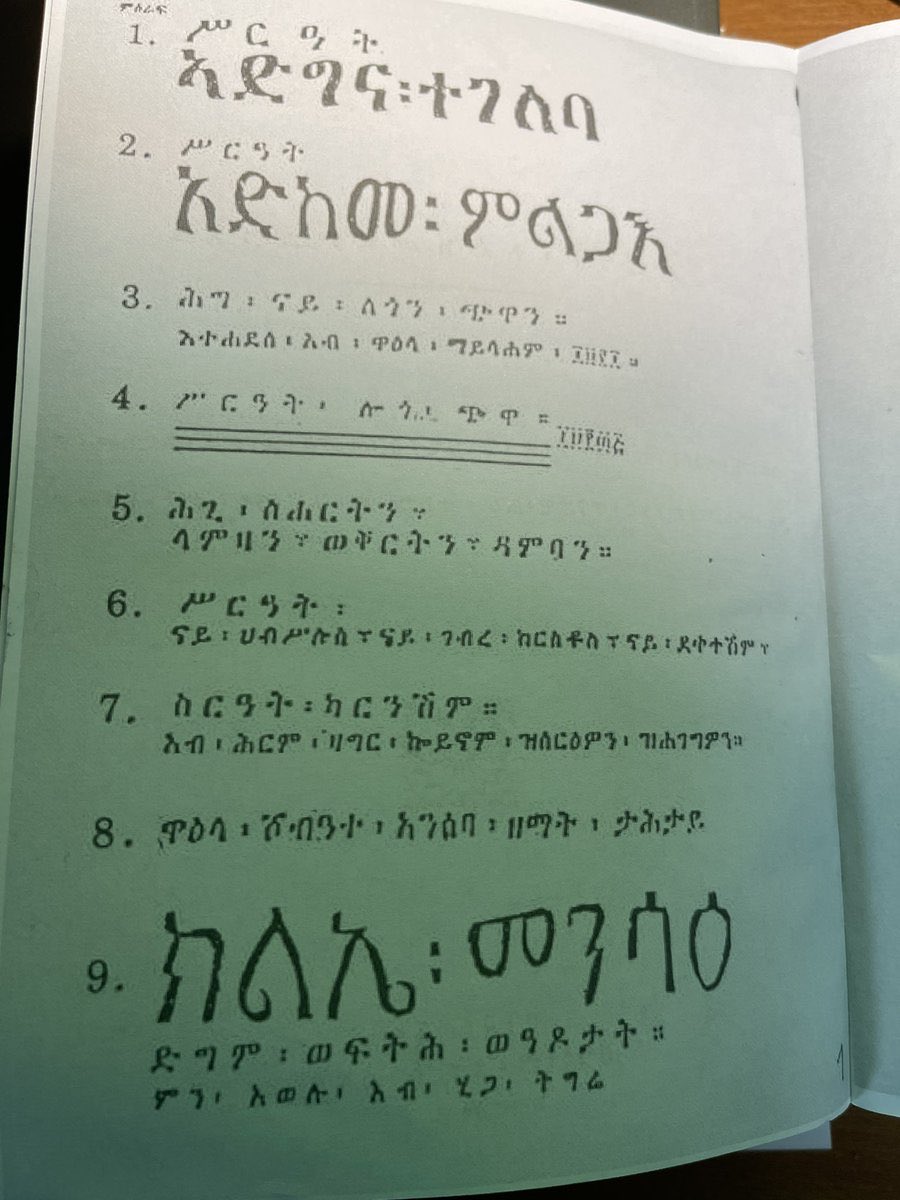 ምዕራፍ
1. ሥርዓት
አድግና፡ተገለባ
2. ሥርዓት
አድከመ፡ምልጋእ
3. ሕግ፡ናይ፡ለጎን፡ጭዋን።
እተሐደሰ፡አብ፡ዋዕላ፡ማይላሐም፡
4. ሥርዓት፡ሎጎ ጭዋ።
5. ሕጊ፡ስሐርትን፣
ላምዛን፣ወቐርትን፣ዳምባን።
6. ሥርዓት፡
ናይ፡ሀብሥሉስ፣ናይ፡ገብረ፡ክርስቶስ፣ናይ፡ደቀተሽም፣
7. ስርዓት፡ካርንሽም።
እብ፡ሕርም፡ዛግር፡ኰይኖም፡ዝሰርዕዎን፡ዝሐገግዎን።
8. ዋዕላ፡ሾብዓተ፡አንሰባ፡ዘማት፡ታሕታይ
9. ክልኤ፡መንሳዕ
ድግም፡ወፍትሕ፡ወዓዶታት።
ምን፡አወሉ፡እብ፡ሂጋ፡ትግሬ
1